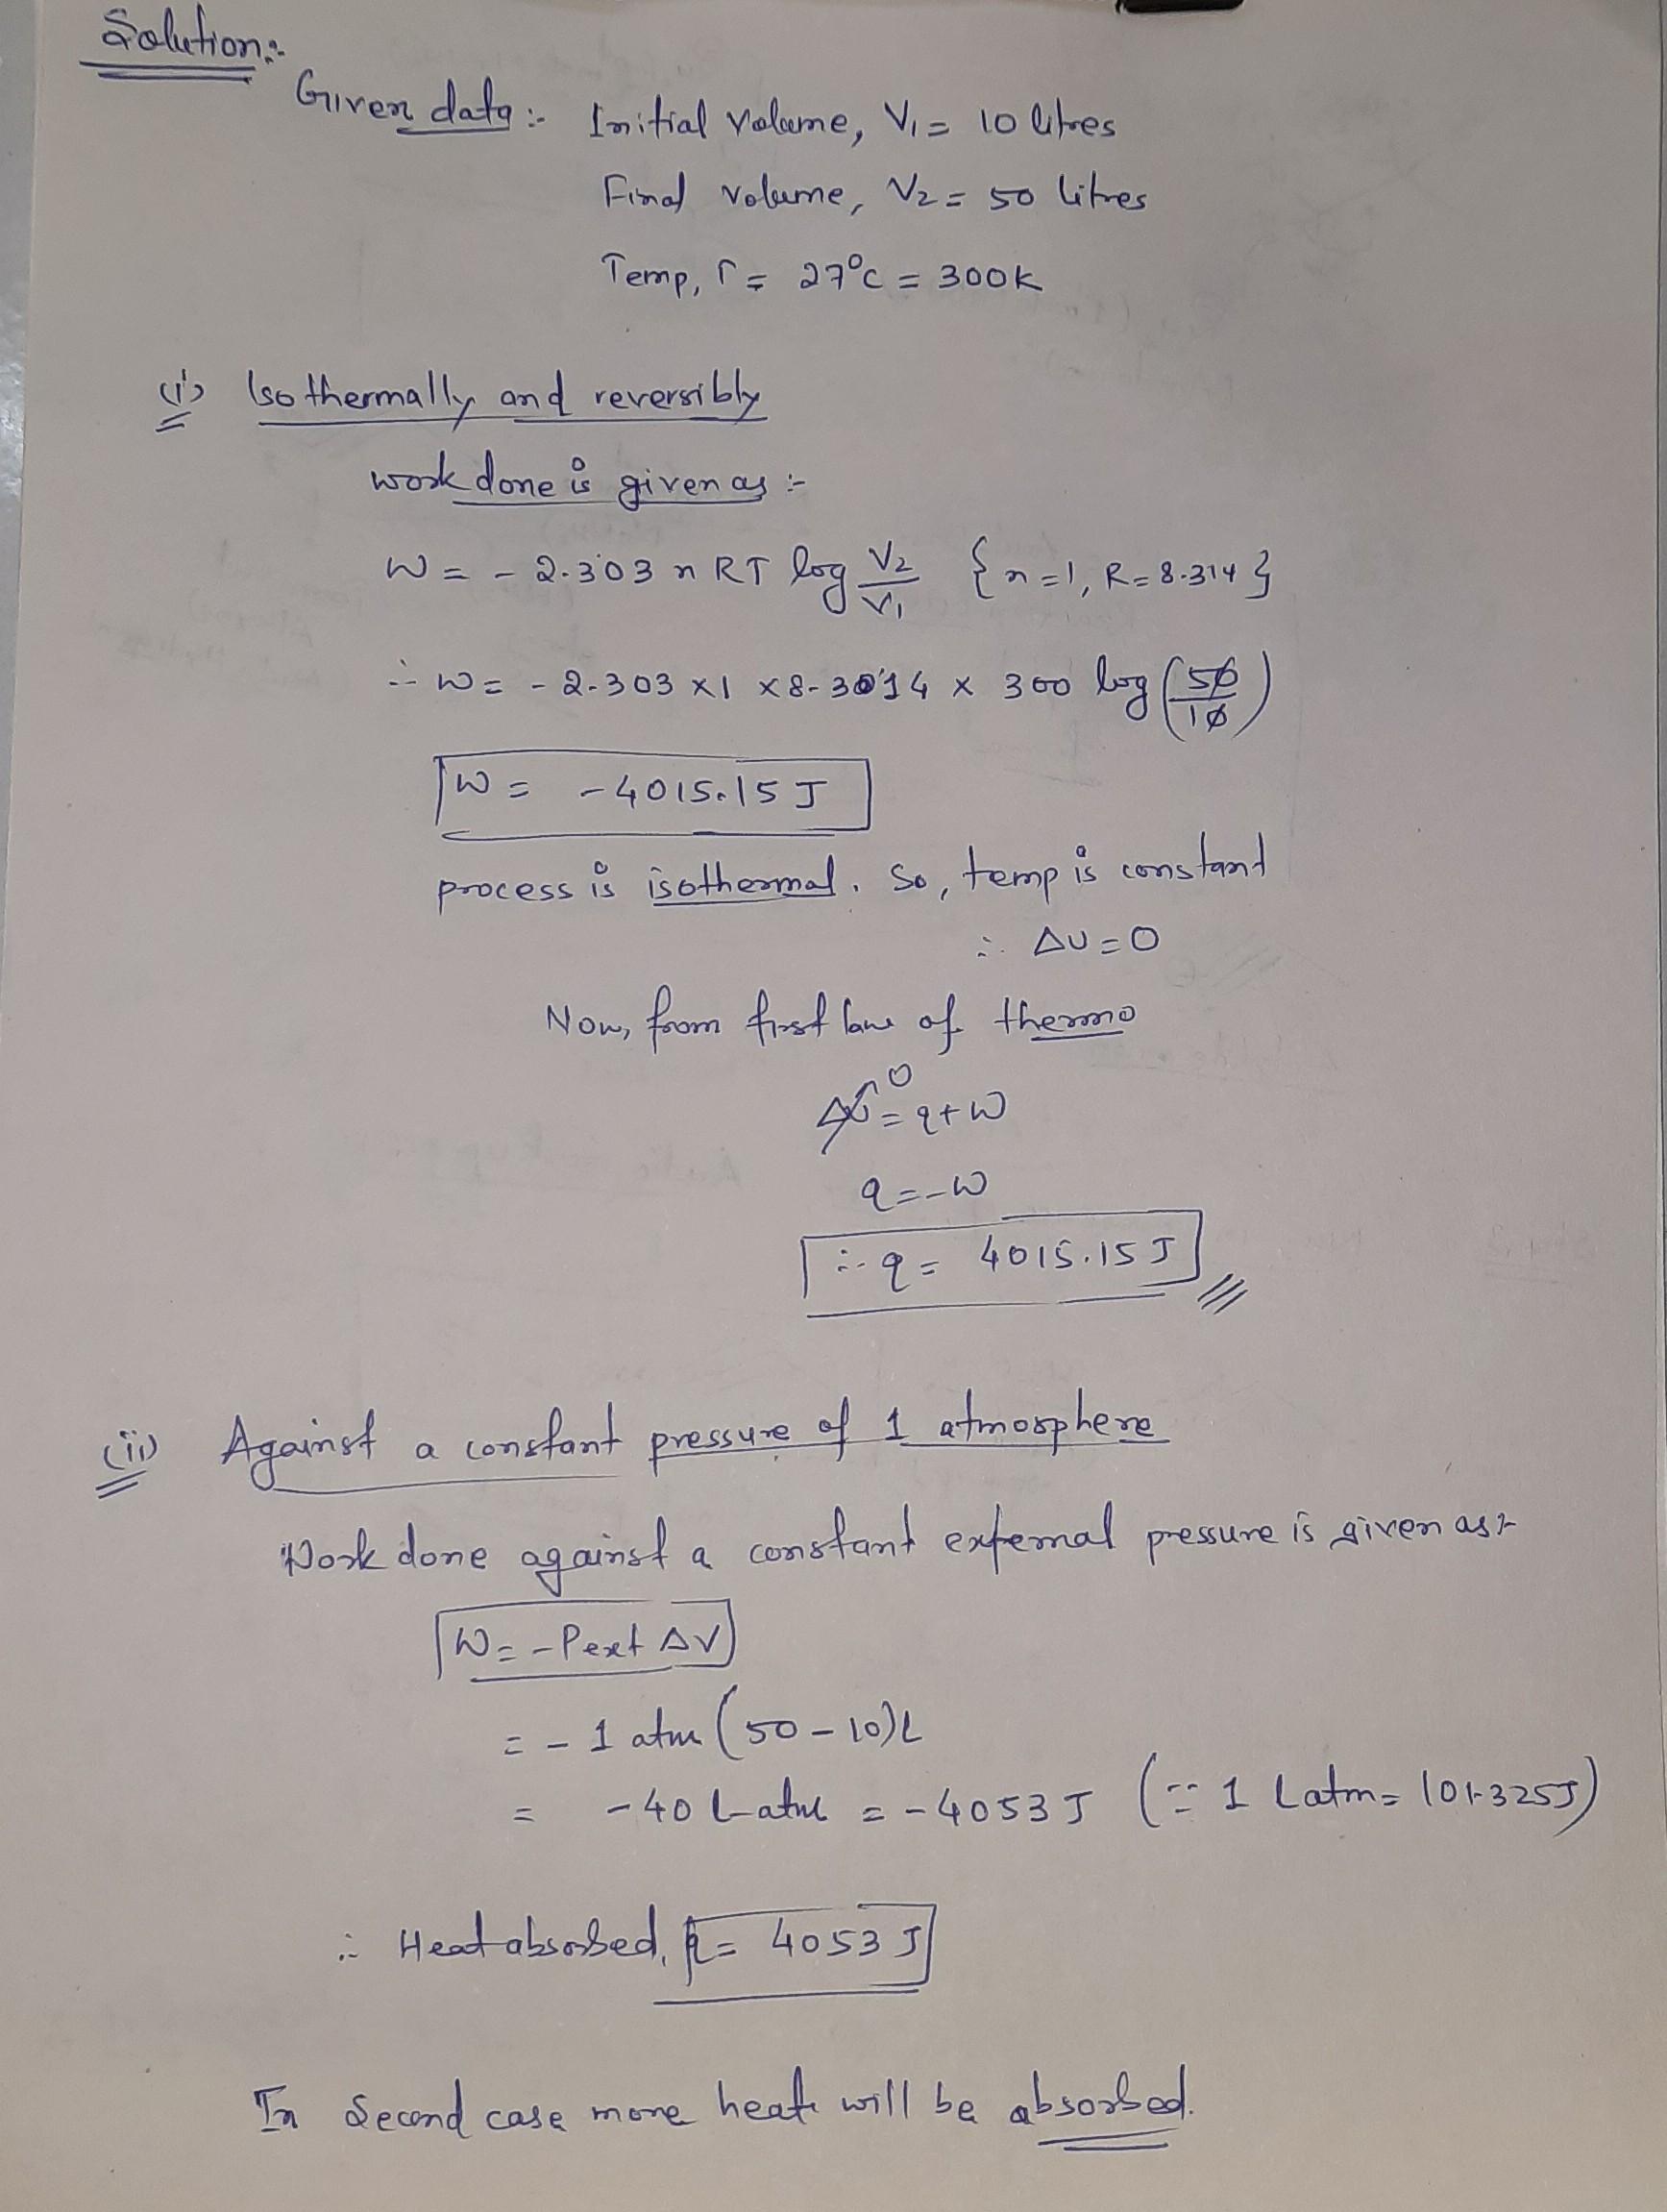 Solution:-
Given data :- Initial Volume, V₁ = 10 litres
Final volume, V₂ = 50 litres
Temp, T = 27°C = 300K
(i) Isothermally and reversibly
work done is given as :-
W = - 2.303 n RT log V₂/V₁ {n=1, R=8.314}
∴ W = - 2.303 x 1 x 8.3014 x 300 log (50/10)
W = -4015.15 J
process is isothermal. So, temp is constant
∴ ΔU = 0
Now, from first law of thermo
ΔU⁰ = q + W
q = -W
∴ q = 4015.15 J
(ii) Against a constant pressure of 1 atmosphere
Work done against a constant external pressure is given as :-
W = - Pext ΔV
= - 1 atm (50 - 10) L
= - 40 L-atm = - 4053 J (∵ 1 L atm = 101.325 J)
∴ Heat absorbed, q = 4053 J
In second case more heat will be absorbed.